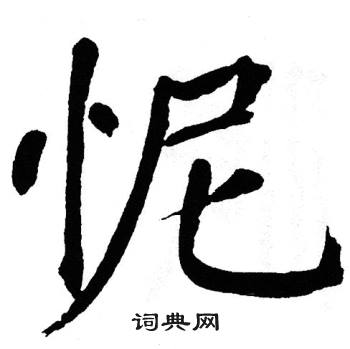 怩
词典网